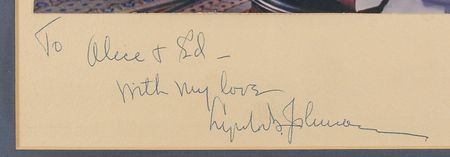 To Alice & Ed –
with my love
Lyndon B. Johnson